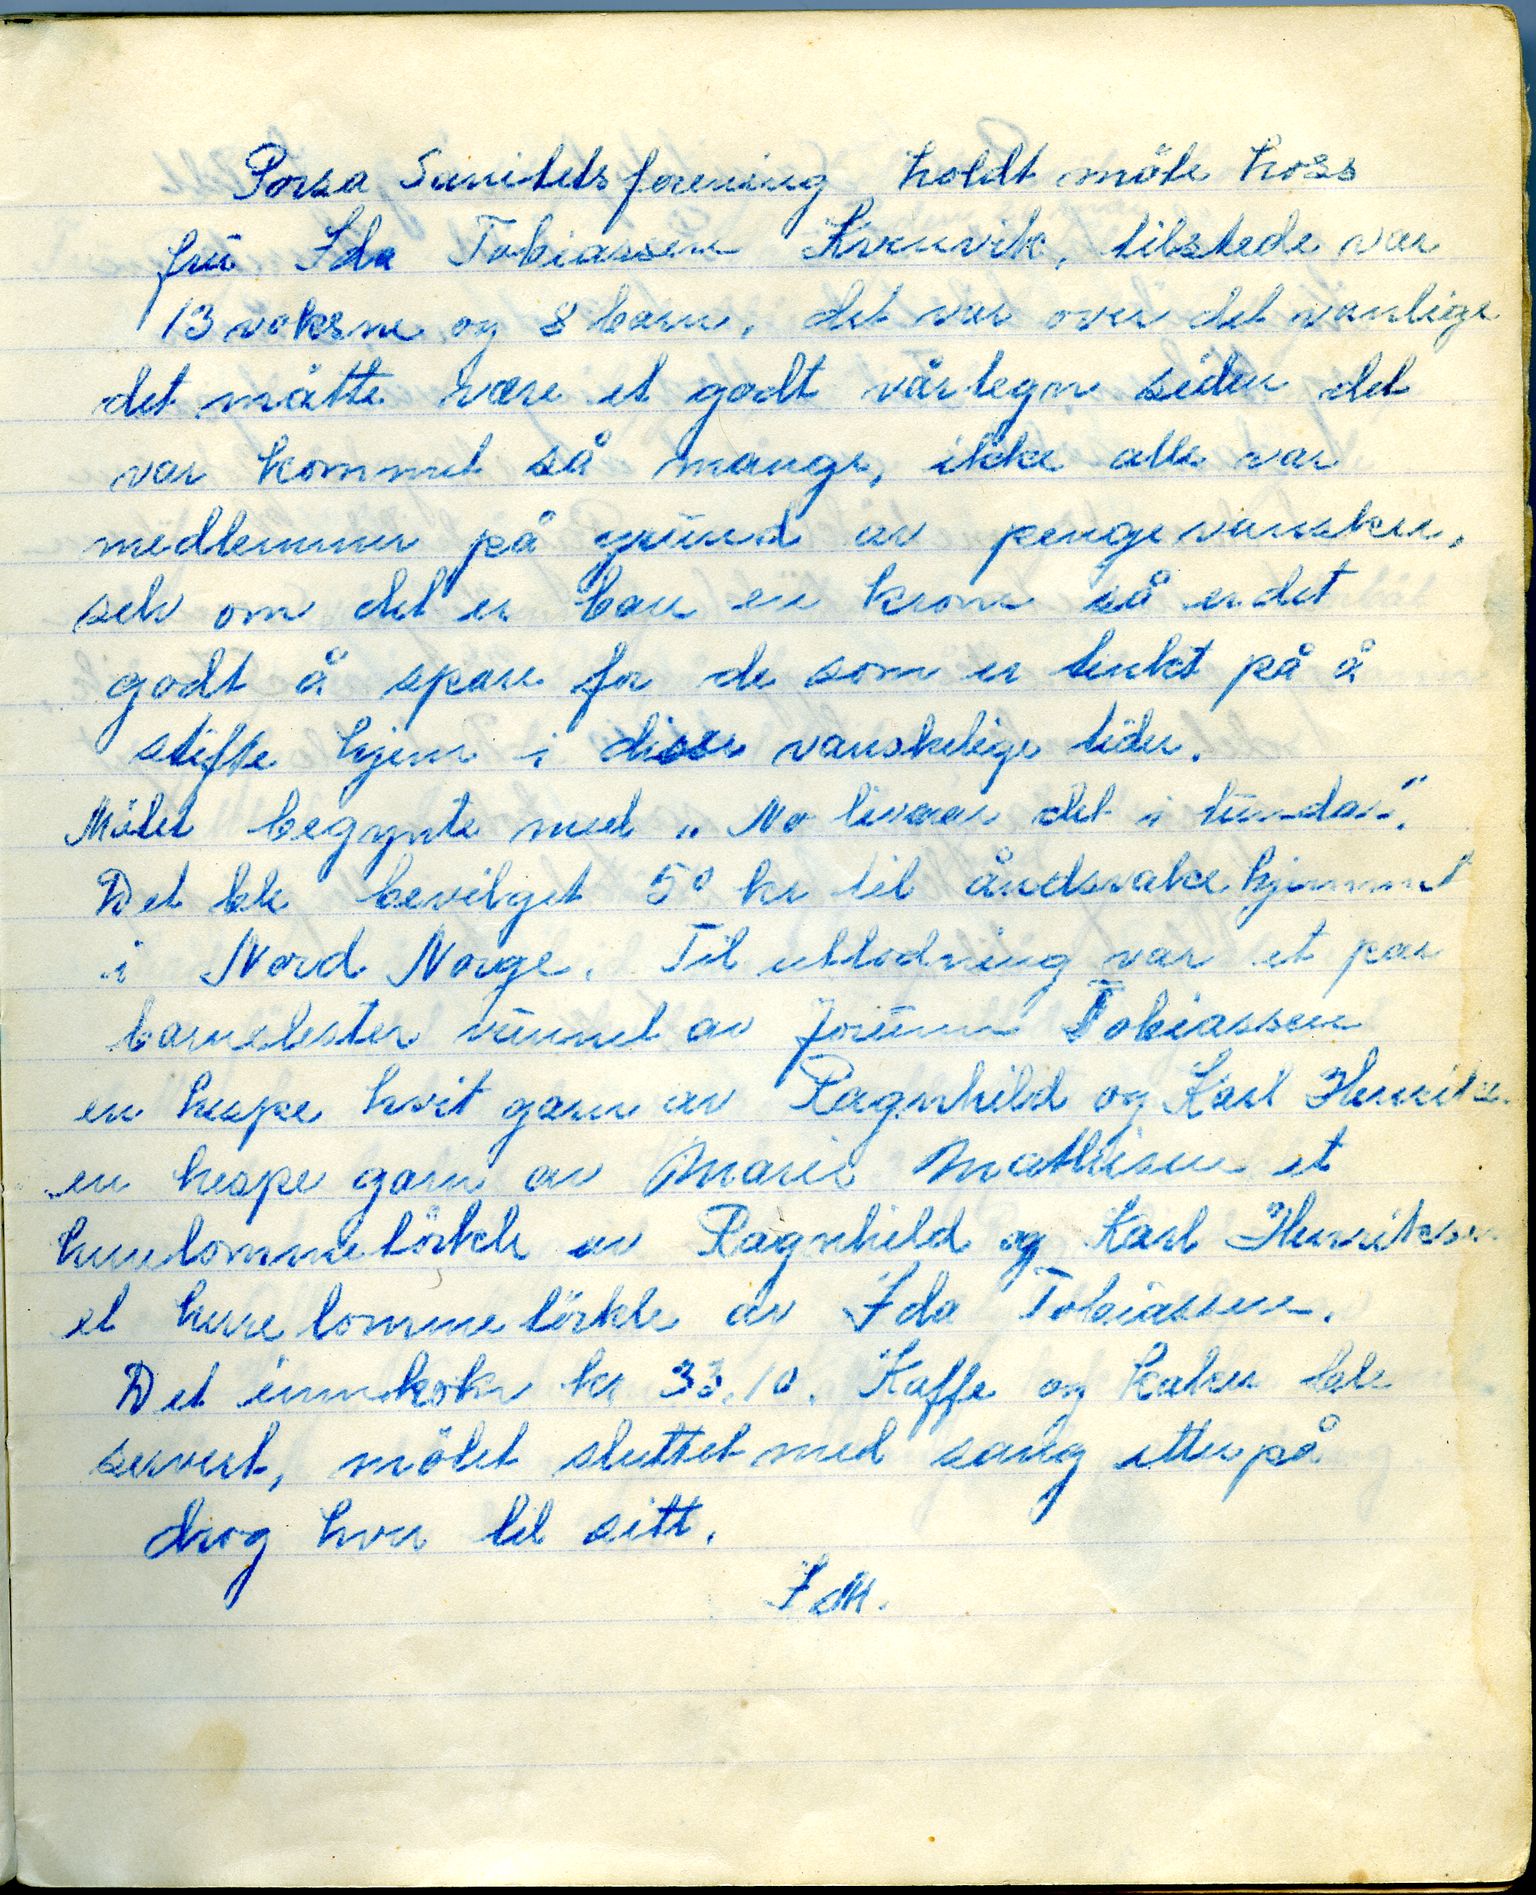 Porsa Sanitetsforening holdt möte hoss
fru Ida Tobiassen Kvenvik, tilstede var
13 voksne og 8 barn, det var over det vanlige
det måtte være et godt vårtegn siden det
var kommet så mange, ikke alle var
medlemmer på grund av penge vansker,
selv om det er bare en krone så er det
godt å spare for de som er tenkt på å
stifte hjem i disse vanskelige tider.
Mötet begynte med „No livnar det i lundar".
Det ble bevilget 50 kr til åndsvakehjemmet
i Nord Norge. Til utlodning var et par
barnelester vunnet av Jorunn Tobiassen
en hespe hvit garn av Ragnhild og Karl Henriks.
en hespe garn av Marie Mathisen et
herrelommetörkle av Ragnhild og Karl Henriksen
et herrelommetörkle av Ida Tobiassen.
Det innkom kr 33.10. Kaffe og kaker ble
servert, mötet sluttet med sang etterpå
drog hver til sitt.
I M.